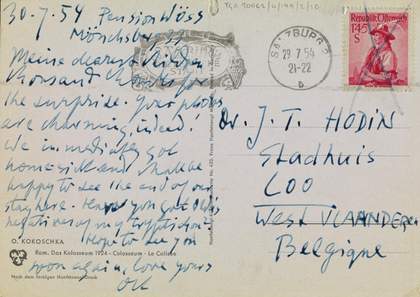 TGA 20062/4/144/2/10
30.7.54 Pension Wöss
Mönchsberg
Meine dearest
thousand thanks for
the surprise. Your photos
are charming, indeed!
We immediately got
homesick and shall be
happy to see the end of our
stay here. Have you got this
negatives of my tryptichon?
Hope to see you
soon again, love yours
OK
O. KOKOSCHKA
Rom, Das Kolosseum 1924 - Colosseum - Le Colisée
Nach dem farbigen Handdruck
SALZBURG 2
29.7.54
21-22
Republik Österreich
1.45
S
Dr. J. T. HODIN
Stadhuis
LOO
West VLAANDEREN
Belgique